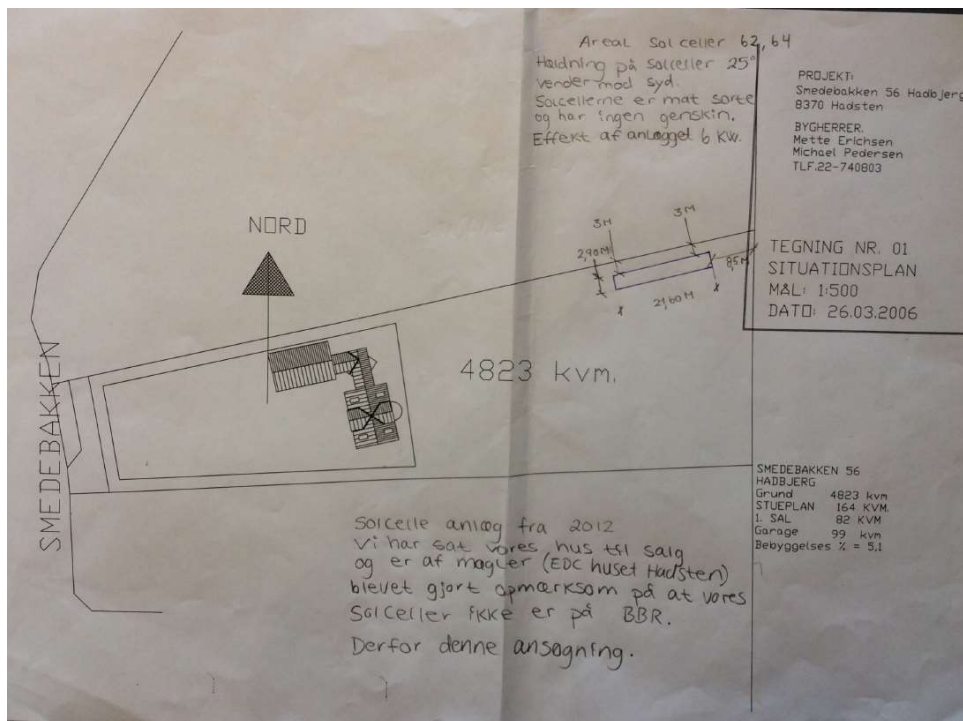 Areal Solceller 62,64
Hældning på solceller 25°
vender mod syd.
Solcellerne er mat sorte
og har ingen genskin.
Effekt af anlægget 6 KW.
PROJEKT:
Smedebakken 56 Hadbjerg
8370 Hadsten
BYGHERRER.
Mette Erichsen
Michael Pedersen
TLF.22-740803
TEGNING NR. 01
SITUATIONSPLAN
MÅL: 1:500
DATO: 26.03.2006
NORD
3M
3M
2,90M
8,5M
21,60M
4823 kvm.
SMEDEBAKKEN
SMEDEBAKKEN 56
HADBJERG
Grund 4823 kvm
STUEPLAN 164 KVM.
1. SAL 82 KVM
Garage 99 kvm
Bebyggelses % = 5,1
Solcelle anlæg fra 2012
Vi har sat vores hus til salg
og er af mægler (EDC huset Hadsten)
blevet gjort opmærksom på at vores
Solceller ikke er på BBR.
Derfor denne ansøgning.